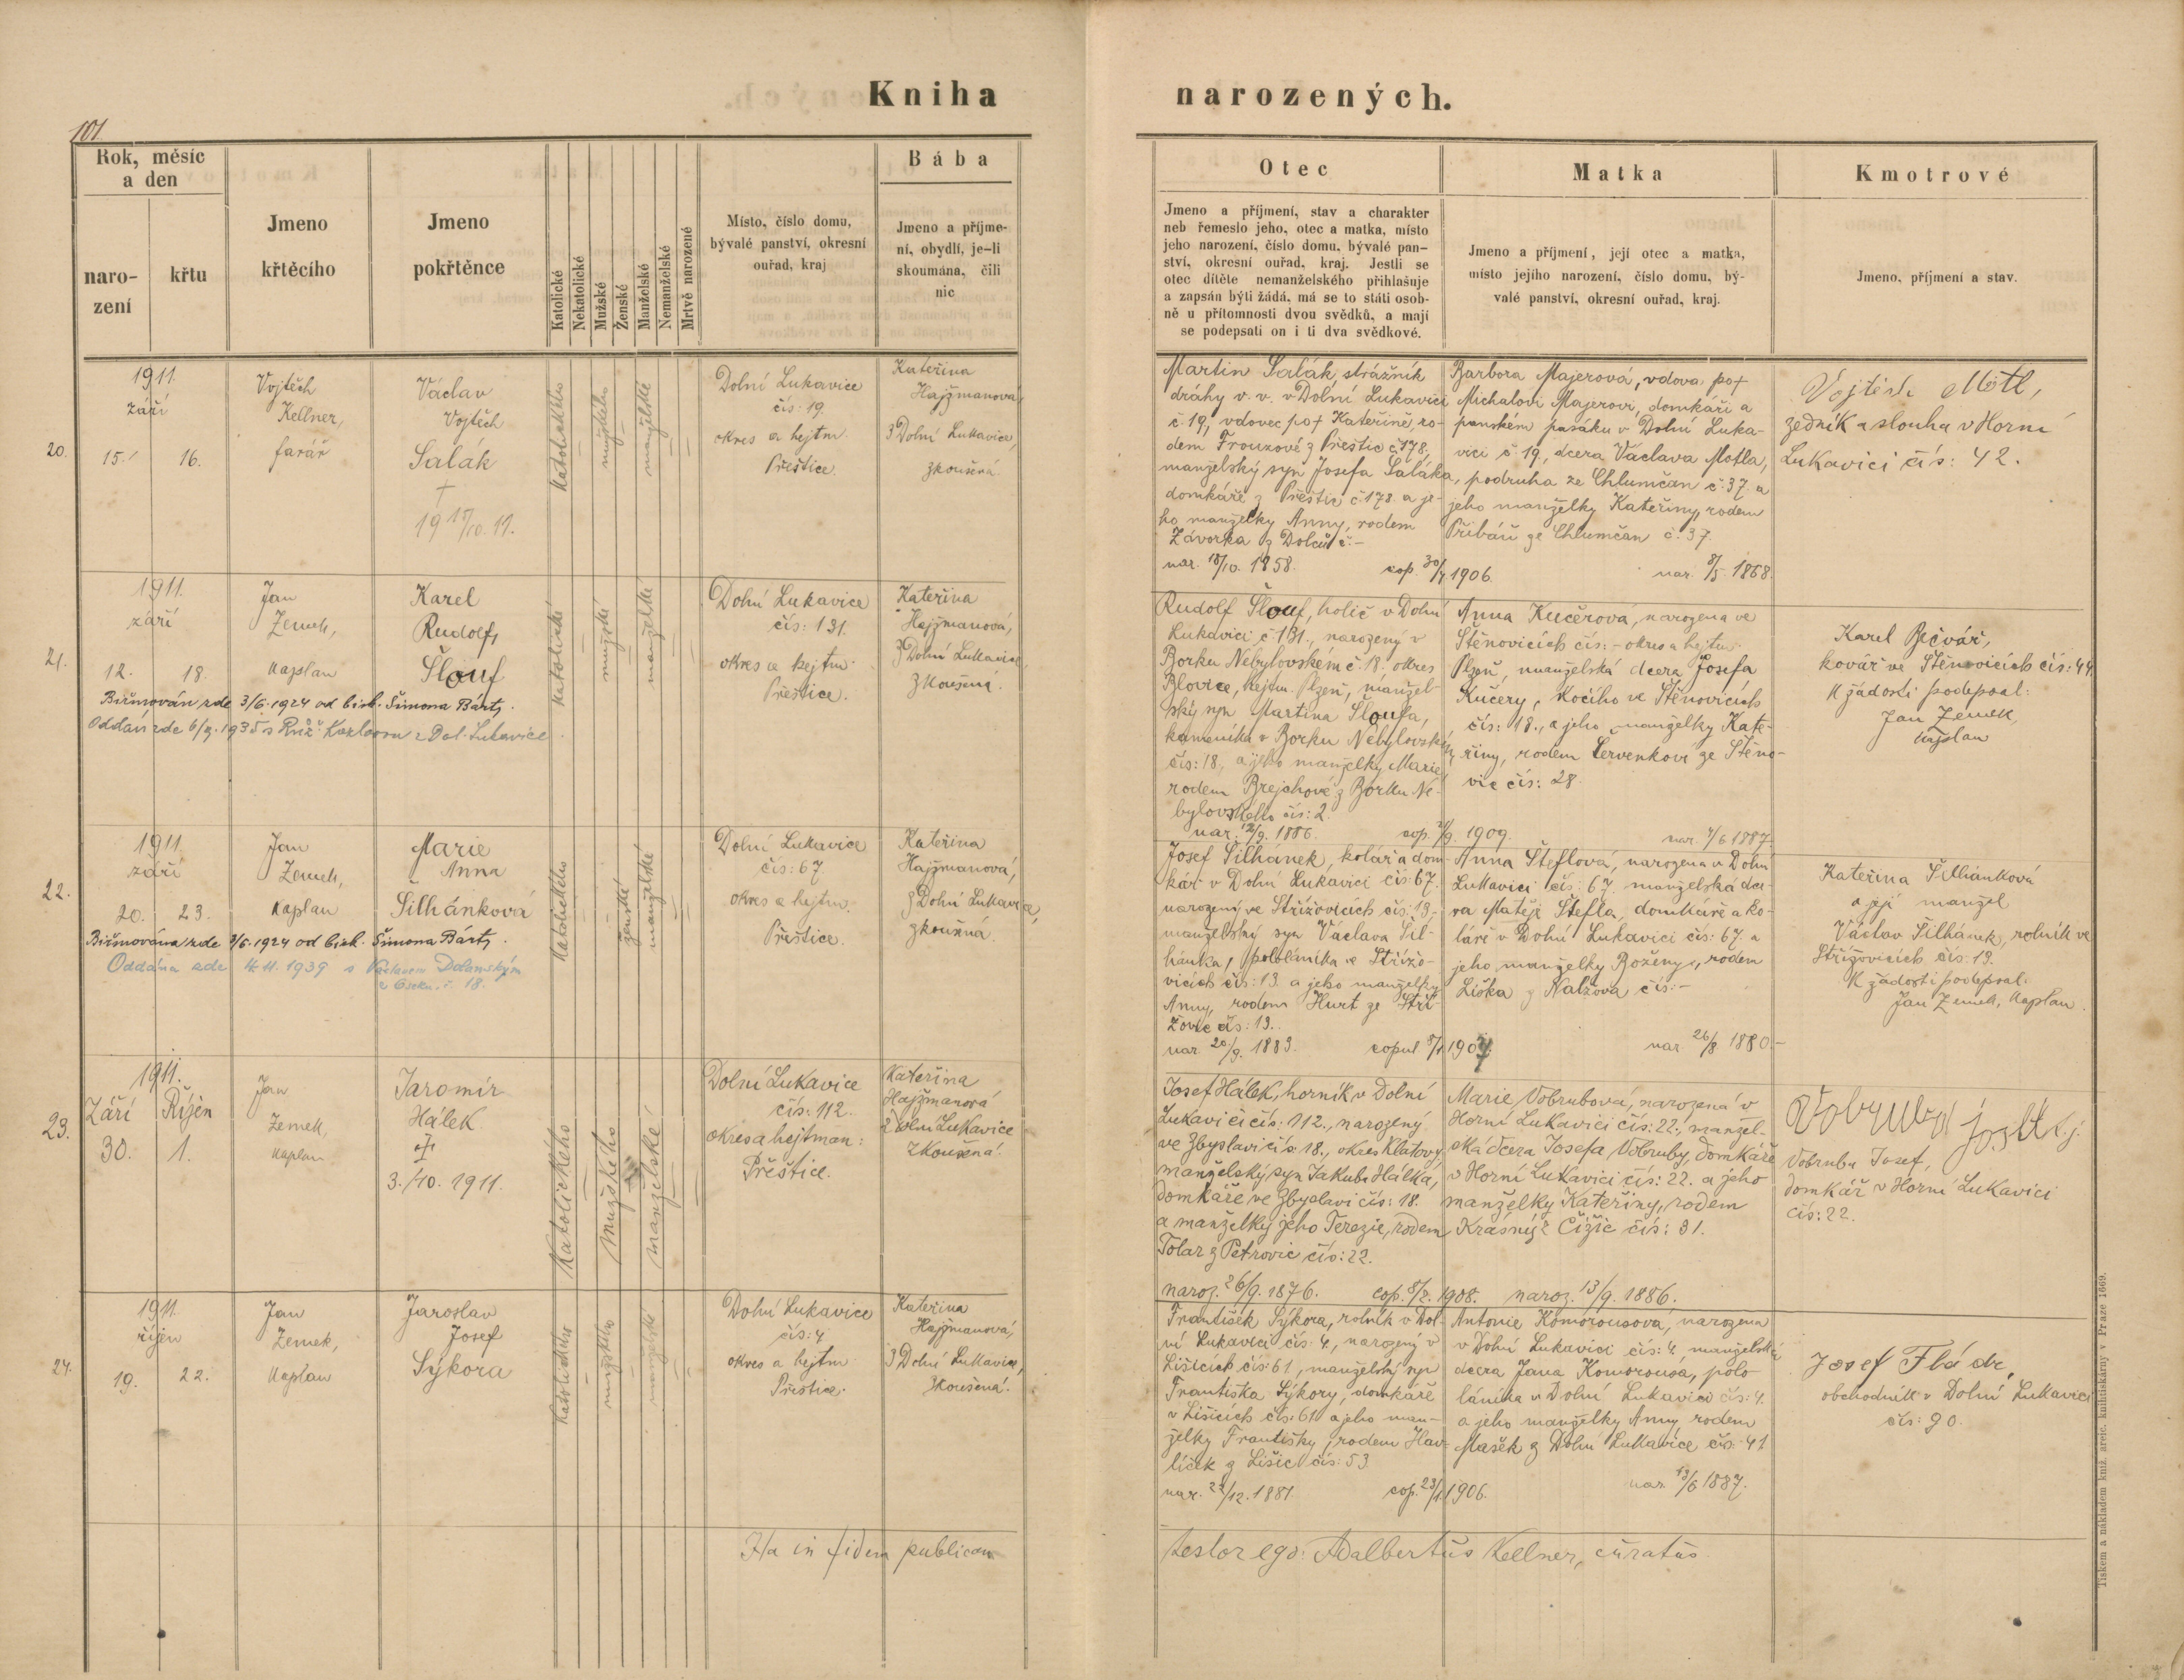 Kniha narozených.
101
Rok, měsíc
a den
naro-
zení
křtu
Jmeno
křtěcího
Jmeno
pokřtěnce
Katolické
Nekatolické
Mužské
Ženské
Manželské
Nemanželské
Mrtvě narozené
Místo, číslo domu,
bývalé panství, okresní
ouřad, kraj
Bába
Jmeno a příjme-
ní, obydlí, je-li
skoumána, čili
nic
Otec
Jmeno a příjmení, stav a charakter
neb řemeslo jeho, otec a matka, místo
jeho narození, číslo domu, bývalé pan-
ství, okresní ouřad, kraj. Jestli se
otec dítěte nemanželského přihlašuje
a zapsán býti žádá, má se to státi osob-
ně u přítomnosti dvou svědků, a mají
se podepsati on i ti dva svědkové.
Matka
Jmeno a příjmení, její otec a matka,
místo jejího narození, číslo domu, bý-
valé panství, okresní ouřad, kraj.
Kmotrové
Jmeno, příjmení a stav.
20.
1911.
září
15. 16.
Vojtěch
Kellner,
farář
Václav
Vojtěch
Salák
†
19 17/10. 11.
katolického
mužského
manželské
Dolní Lukavice
čís: 19.
okres a hejtm.
Přeštice.
Kateřina
Hajžmanová,
z Dolní Lukavice,
zkoušená
Martin Salák, strážník
dráhy v. v. v Dolní Lukavici
č 19, vdovec po † Kateřině, ro-
dem Frouzové z Přeštic č 178,
manželský syn Josefa Saláka,
domkáře z Přeštic č. 178. a je-
ho manželky Anny, rodem
Závorka z Dolců č. -
nar. 18/10. 1858. cop. 30/4 1906.
Barbora Majerová, vdova po †
Michalovi Majerovi, domkáři a
panském pasáku v Dolní Luka-
vici č 19, dcera Václava Motla,
podruha ze Chlumčan č. 37. a
jeho manželky Kateřiny, rodem
Přibáň ze Chlumčan č. 37.
nar. 8/5. 1868.
Vojtěch Mótl,
zedník a slouha v Horní
Lukavici čís: 42.
21.
1911.
září
12. 18.
Jan
Zemek,
kaplan
Karel
Rudolf,
Šlouf
Biřmován zde 3/6. 1924 od bisk. Šimona Bárty.
Oddán zde 6/7. 1935 s Růž. Kozlovou z Dol. Lukavice
katolické
mužské
manželské
Dolní Lukavice
čís: 131.
okres a hejtm.
Přeštice.
Kateřina
Hajžmanová,
z Dolní Lukavice,
zkoušená.
Rudolf Šlouf, holič v Dolní
Lukavici č 131., narozený v
Borku Nebylovském č. 18. okres
Blovice, hejtm. Plzeň, manžel-
ský syn Martina Šloufa,
kameníka v Borku Nebylovském
čís: 18., a jeho manželky Marie,
rodem Brejchové z Borku Ne-
bylovského čís: 2.
nar. 12/9. 1886. cop. 21/9. 1909.
Anna Kučerová, narozena ve
Štěnovicích čís: - okres a hejtm.
Plzeň, manželská dcera Josefa
Kučery, kočího ve Štěnovicích
čís: 18., a jeho manželky Kate-
řiny, rodem Červenkové ze Štěno-
vic čís: 28.
nar. 4/6 1887.
Karel Bečvář,
kovář ve Štěnovicích čís: 44.
K žádosti podepsal:
Jan Zemek,
kaplan
22.
1911
září
20. 23.
Jan
Zemek,
kaplan
Marie
Anna
Šilhánková
Biřmována zde 3/6. 1924 od bisk. Šimona Bárty.
Oddána zde 4. 11. 1939 s Václavem Dolanským
katolického
ženské
manželské
Dolní Lukavice
čís: 67.
okres a hejtm.
Přeštice.
Kateřina
Hajžmanová,
z Dolní Lukavice,
zkoušená
Josef Šilhánek, kolář a dom-
kář v Dolní Lukavici čís: 67.
narozený ve Střížovicích čís: 13,
manželský syn Václava Šil-
hánka, pololáníka ve Střížo-
vicích čís: 13. a jeho manželky
Anny, rodem Hurt ze Stří-
žovic čís: 13.
nar. 20/9. 1883. copul 8/1 1907.
Anna Šteflová, narozena v Dolní
Lukavici čís: 67. manželská dce-
ra Matěje Štefla, domkáře a ko-
láře v Dolní Lukavici čís: 67. a
jeho manželky Boženy, rodem
Liška z Nalžova čís: -
nar 26/8. 1880.-
Kateřina Šilhánková
a její manžel
Václav Šilhánek, rolník ve
Střížovicích čís: 13.
K žádosti podepsal:
Jan Zemek, kaplan.
23.
1911.
Září Říjen
30. 1.
Jan
Zemek,
kaplan
Jaromír
Hálek
†
3./10. 1911.
Katolického
Mužského
manželské
Dolní Lukavice
čís: 112.
okres a hejtman:
Přeštice.
Kateřina
Hajžmanová
z Dolní Lukavice
zkoušená.
Josef Hálek, horník v Dolní
Lukavici čís: 112., narozený
ve Zbyslavi čís. 18., okres Klatovy
manželský syn Jakuba Hálka,
domkáře, ve Zbyslavi čís: 18.
a manželky jeho Terezie, rodem
Tolar z Petrovic čís: 22.
naroz. 26/9. 1876. cop. 8/2. 1908.
Marie Vobrubová, narozená v
Horní Lukavici čís: 22., manžel-
ská dcera Josefa Vobruby, domkáře
v Horní Lukavici čís: 22. a jeho
manželky Kateřiny, rodem
Krásný z Čižic čís: 31.
naroz. 13/9. 1886.
Vobruba Josef,
domkář v Horní Lukavici
čís: 22.
24.
1911.
říjen
19. 22.
Jan
Zemek,
kaplan
Jaroslav
Josef
Sýkora
katolického
mužského
manželské
Dolní Lukavice
čís: 4
okres a hejtm.
Přeštice.
Kateřina
Hajžmanová,
z Dolní Lukavice,
zkoušená.
František Sýkora, rolník v Dol-
ní Lukavici čís: 4, narozený v
Lišicích čís: 61, manželský syn
Františka Sýkory, domkáře
v Lišicích čís: 61 a jeho man-
želky Františky, rodem Hav-
líček z Lišic čís: 53.
nar. 22/12. 1881 cop. 23/1. 1906.
Antonie Komorousova, narozena
v Dolní Lukavici čís: 4 manželská
dcera Jana Komorousa, polo-
láníka v Dolní Lukavici čís: 4.
a jeho manželky Anny rodem
Mašek z Dolní Lukavice čís: 41
nar. 13/6 1887.
Josef
obchodník v Dolní Lukavici
čís: 90.
Ita in fidem publicam
testor ego: Adalbertus Kellner, curatus.
Tiskem a nákladem kníž. arcib. knihtiskárny v Praze 1669.